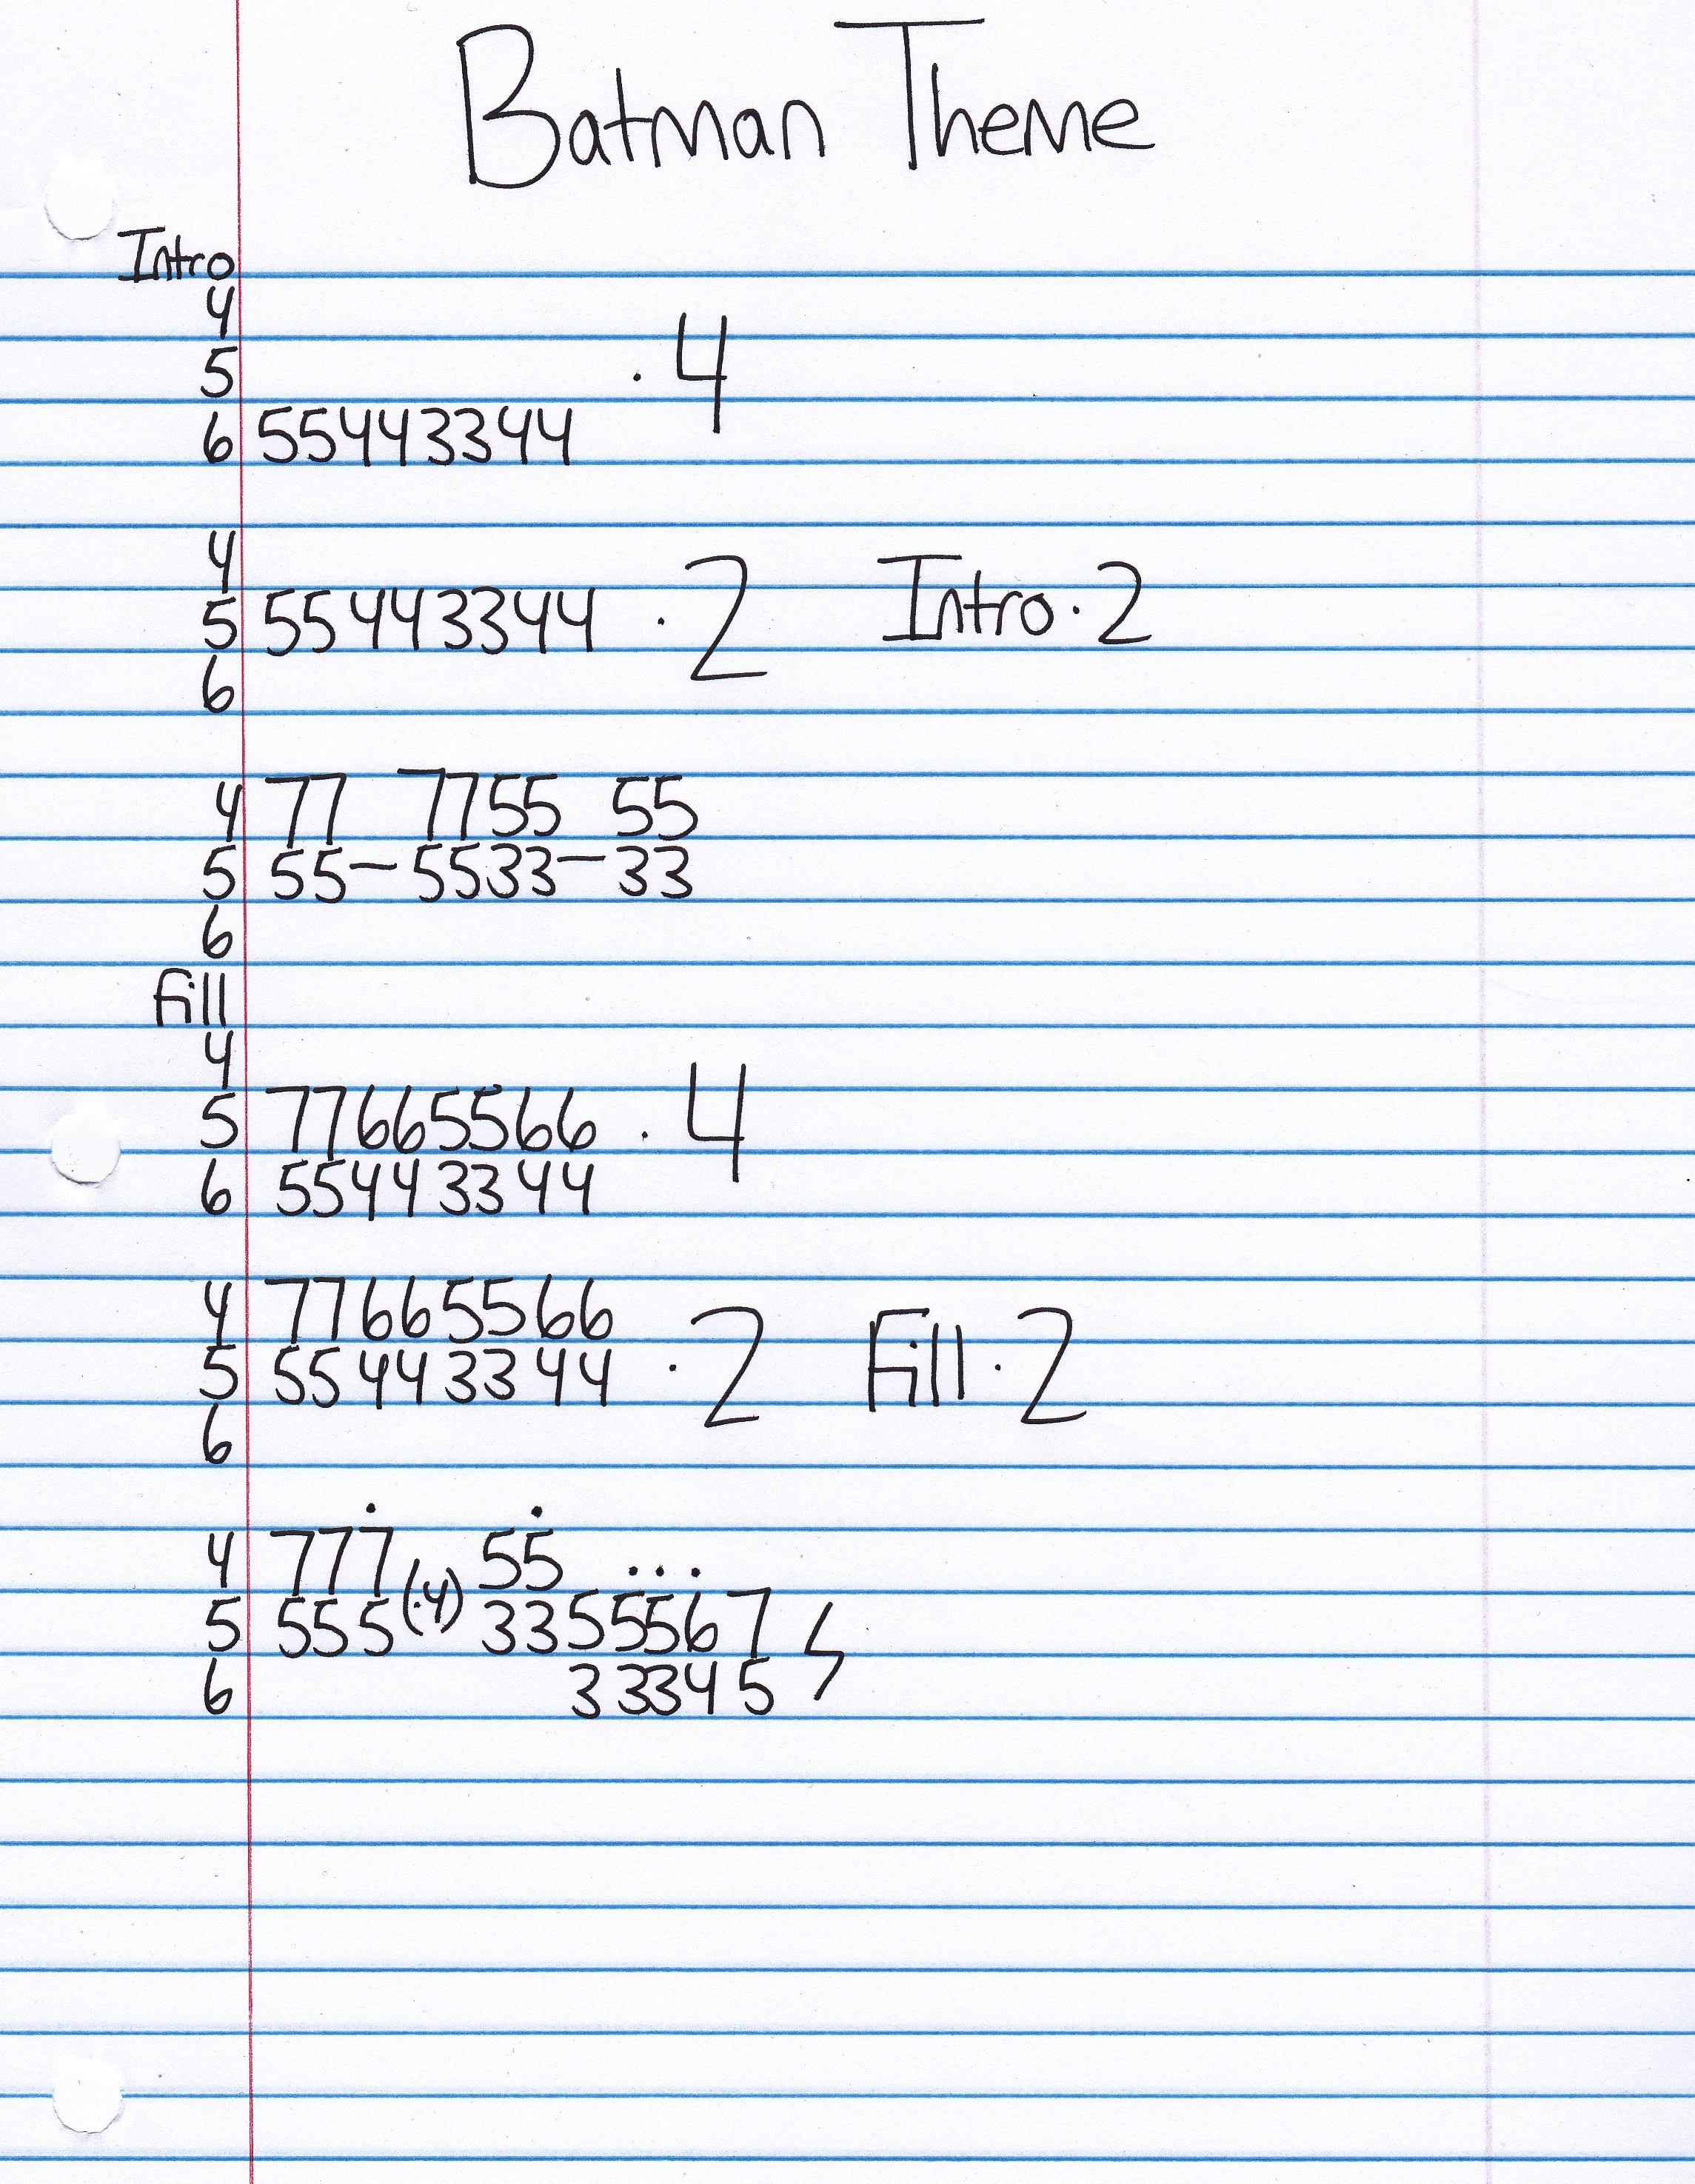 Batman Theme
Intro
4
5 . 4
6 55443344
4
5 55443344 . 2 Intro . 2
6
4 77 7755 55
5 55–5533–33
6
Fill
4
5 77665566 . 4
6 55443344
4 77665566
5 55443344 . 2 Fill . 2
6
4 777̇ 55̇ ...
5 555(.4) 3355567
6 33345